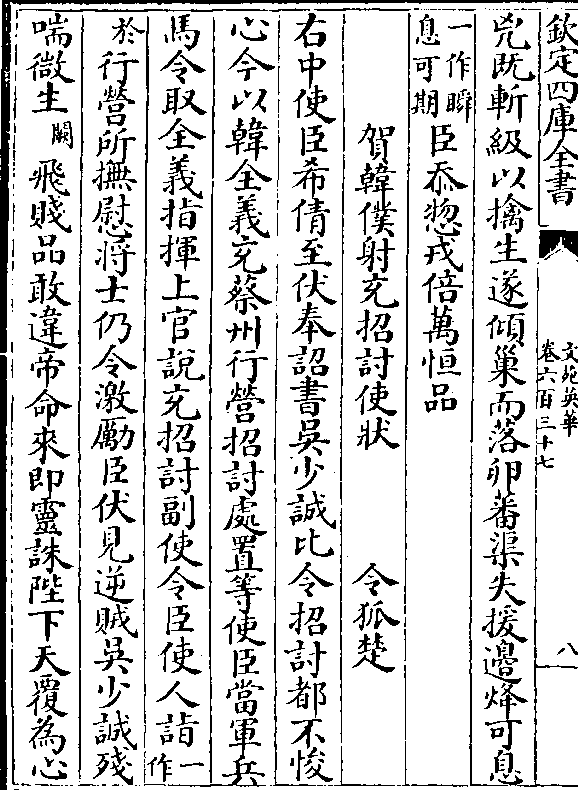 欽定四庫全書
文苑英華
卷六百三十七
八
兇既斬級以擒生遂傾巢而落卵蕃渠失援邊烽可息
一作瞬息可期臣忝惣戎倍萬恒品
賀韓僕射充招討使狀 令狐楚
右中使臣希倩至伏奉詔書吳少誠比令招討都不悛
心今以韓全義充蔡州行營招討處置等使臣當軍兵
馬令取全義指揮上官說充招討副使令臣使人詣一作
於行營所撫慰將士仍令激勵臣伏見逆賊吳少誠殘
喘微生闕飛賤品敢違帝命來即靈誅陛下天覆為心